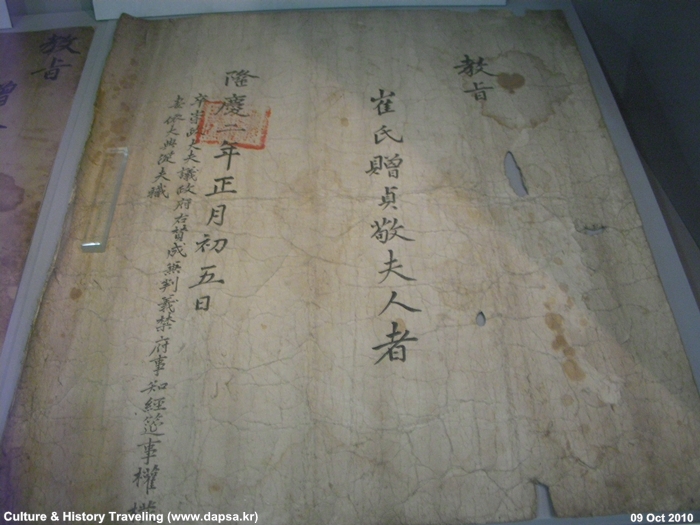 教旨
崔氏贈貞敬夫人者
隆慶二年正月初五日
卒崇政大夫議政府右賛成兼判義禁府事知經筵事權
妻依大典從夫職
教旨
贈
Culture & History Traveling (www.dapsa.kr)
09 Oct 2010